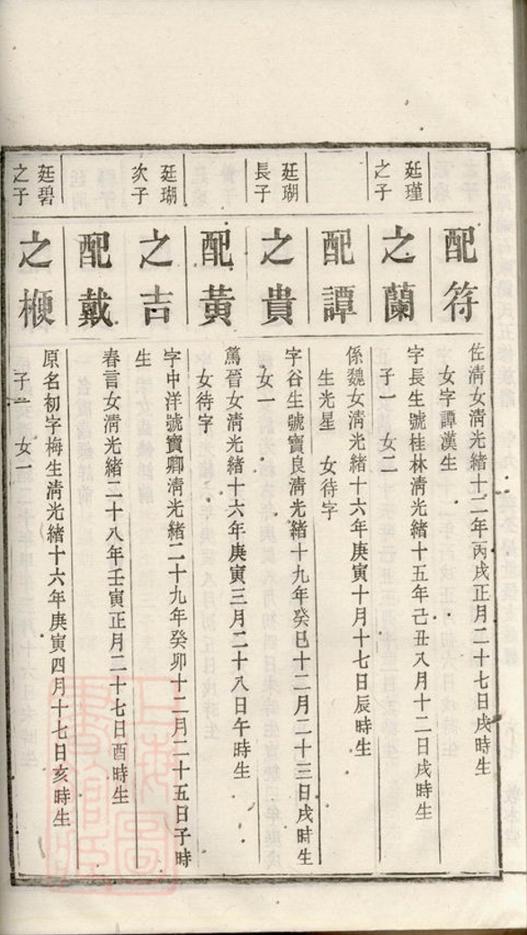 配符
佐淸女淸光緒十二年丙戌正月二十七日戌時生
女字譚漢生
廷瑾
之子
之蘭
字長生號桂林淸光緒十五年己丑八月十二日戌時生
子一 女二
配譚
係魏女淸光緒十六年庚寅十月十七日辰時生
生光星 女待字
廷瑚
長子
之貴
字谷生號寶良淸光緒十九年癸巳十二月二十三日戌時生
女一
配黃
篤晉女淸光緒十六年庚寅三月二十八日午時生
女待字
廷瑚
次子
之吉
字中洋號寶卿淸光緒二十九年癸卯十二月二十五日子時
生
配戴
春言女淸光緒二十八年壬寅正月二十七日酉時生
廷碧
之子
之楩
原名初字梅生淸光緒十六年庚寅四月十七日亥時生
子一 女一